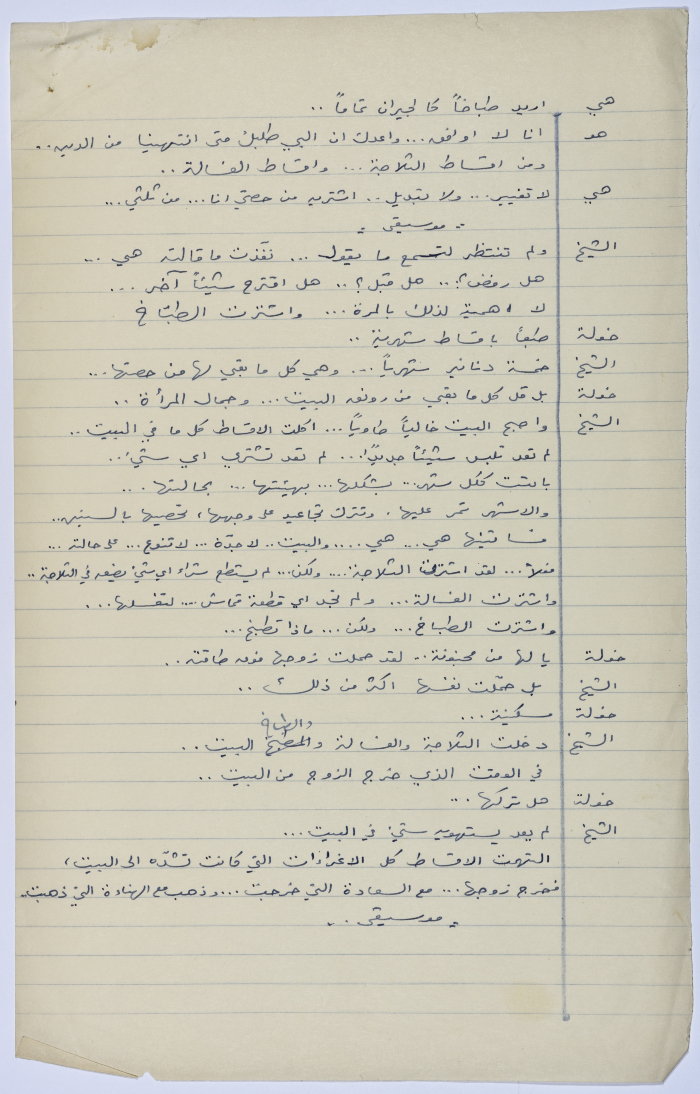 هي اريد طباخاً كالجيران تماماً ..
هو انا لا اوافق... واعدك ان البي طلبك متى انتهينا من الدين..
ومن اقساط الثلاجة... واقساط الغسالة ..
هي لا تغيير... ولا تبديل .. اشتريه من حصتي انا... من ثلثي...
- موسيقى -
الشيخ ولم تنتظر لتسمع ما يقول ... نفّذت ما قالته هي ...
هل رفض؟.. هل قبل؟.. هل اقترح شيئاً آخر ...
لا اهمية لذلك بالمرة... واشترت الطبّاخ
خولة طبعاً باقساط شهرية ..
الشيخ خمسة دنانير شهرياً... وهي كل ما بقي لها من حصتها...
خولة بل قل كل ما بقي من رونق البيت... وجمال المرأة ..
الشيخ واصبح البيت خالياً خاوياً... اكلت الاقساط كل ما في البيت ..
لم تعد تلبس شيئاً جديداً... لم تعد تشتري اي شيء..
باتت ككل شهر... بشكلها... بهيئتها... بحالتها ...
والاشهر تمر عليها، وتترك تجاعيد على وجهها، تحصيها بالسنين..
فساتينها هي... هي .... والبيت.. لا جدّة... لا تنوع... على حالته ...
فعلاً... لقد اشترت الثلاجة... ولكن... لم يستطع شراء اي شيء يضعه في الثلاجة ..
واشترت الغسالة... ولم تجد اي قطعة قماش ... لتغسلها...
واشترت الطباخ... ولكن... ماذا تطبخ...
خولة يا لها من مجنونة .. لقد حملت زوجها فوق طاقته ..
الشيخ بل حمّلت نفسها اكثر من ذلك ..
خولة مسكينة ...
الشيخ دخلت الثلاجة والغسالة والطباخ البيت ..
في الوقت الذي خرج الزوج من البيت ..
خولة هل تركها ...
الشيخ لم يعد يستهويه شيء في البيت...
التهمت الاقساط كل الاغراءات التي كانت تشدّه الى البيت،
فخرج زوجها... مع السعادة التي خرجت ... وذهب مع الهناءة التي ذهبت..
- موسيقى -